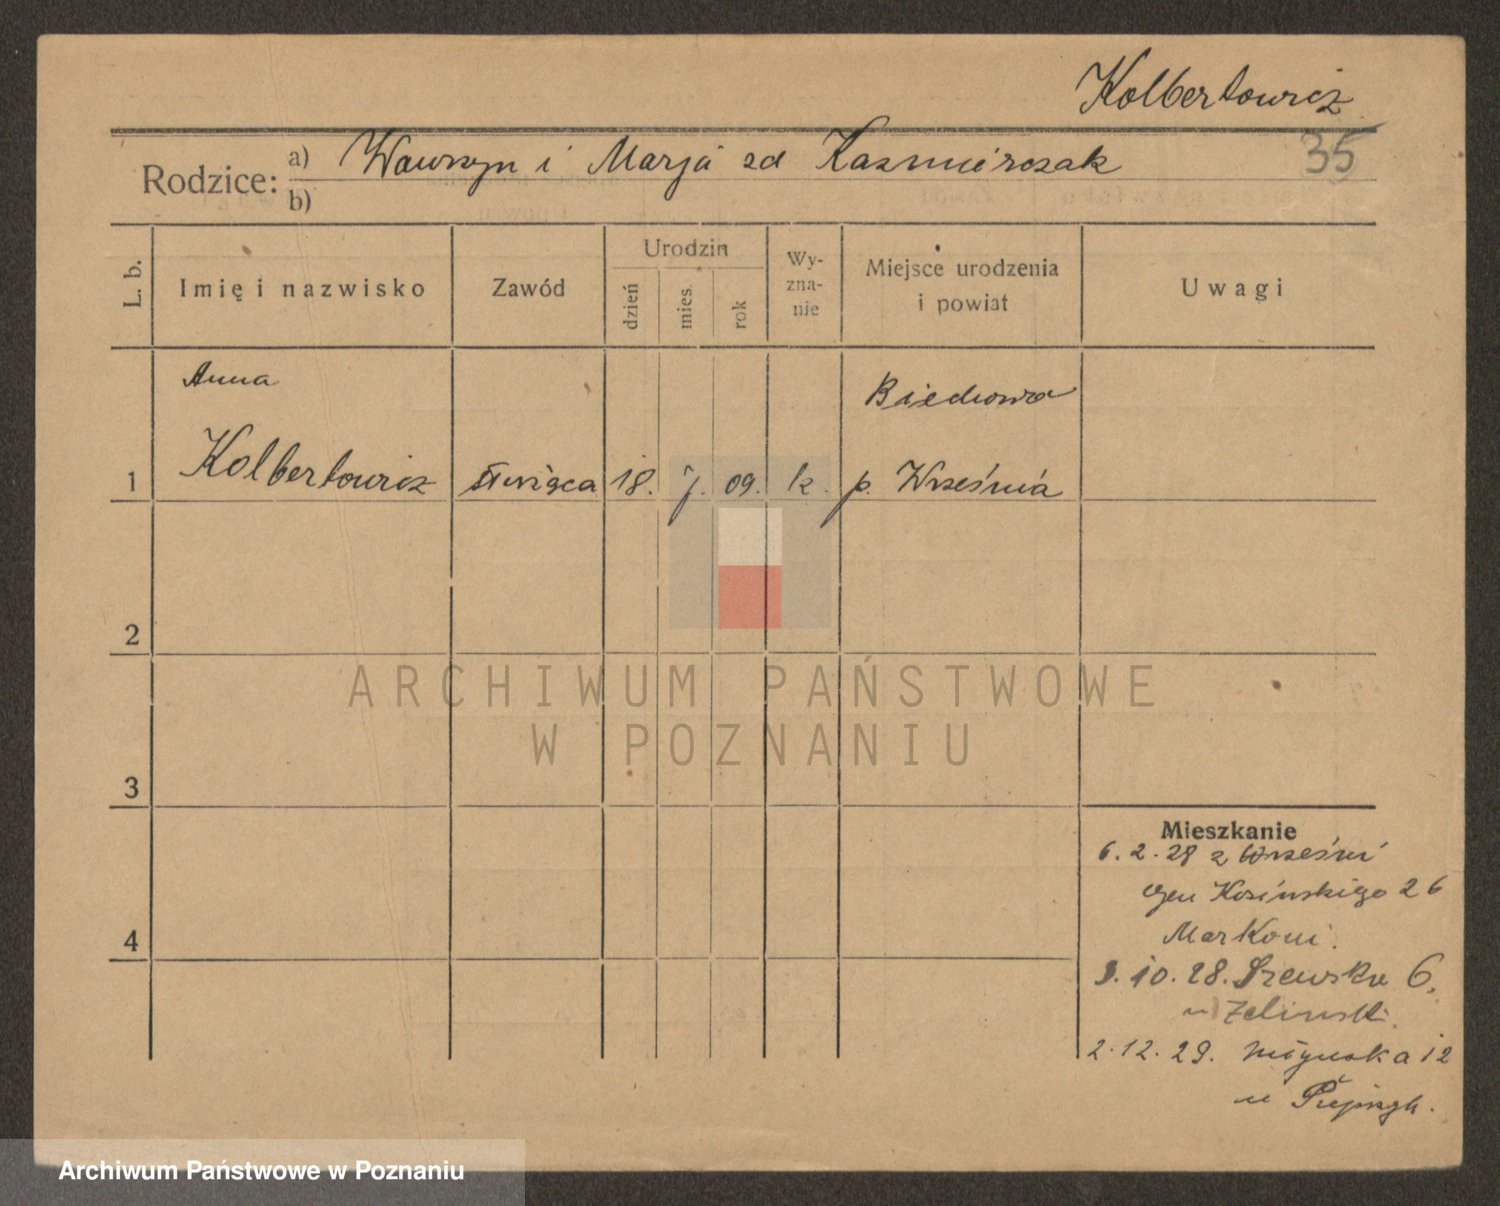 Kolbertowicz
35
Rodzice: a) Wawrzyn i Marja zd Kazmierczak
b)
L. b.
Imię i nazwisko
Zawód
Urodzin
dzień
mies.
rok
Wy-
zna-
nie
Miejsce urodzenia
i powiat
Uwagi
Anna
Biechowo
1 Kolbertowicz służąca 18. 7. 09. k. p. Września
2
3
4
Mieszkanie
6.2.28 z Wrześni
Kosińskiego 26
Markoni.
3.10.28. Szewska 6,
u Zelinsk.
2.12.29. 12
u
ARCHIWUM PAŃSTWOWE
W POZNANIU
Archiwum Państwowe w Poznaniu